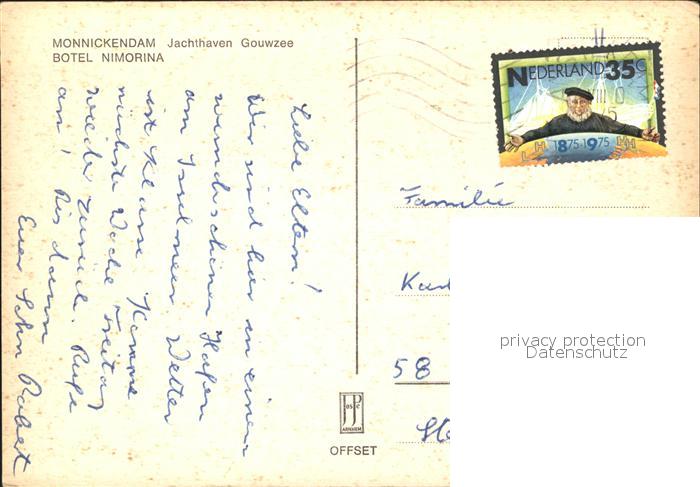 MONNICKENDAM Jachthaven Gouwzee
BOTEL NIMORINA
Liebe Eltern!
Wir sind hier in einem
wunderschönen Hafen
am Isselmeer. Wetter
ist klasse. Komme
nächste Woche Freitag
wieder zurück. Rufe
an! Bis dann
Euer Sohn Robert
NEDERLAND 35c
1875-1975
Familie
Karl
58
JosPé
ARNHEM
OFFSET
privacy protection
Datenschutz